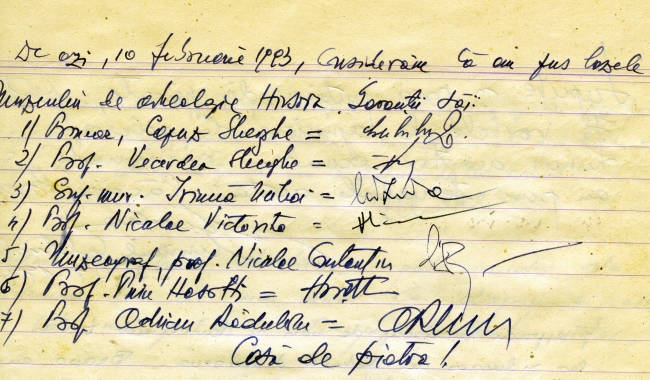 De azi, 10 februarie 1993, considerăm că am pus bazele
Muzeului de arheologie Hîrșova. Garanții săi:
1) Primar, Gheorghe =
2) Prof. Gheorghe =
3) Șef muz. Irimia Mihai =
4) Prof. Nicolae Victorița =
5) Muzeograf, prof. Nicolae Constantin
6) Prof. Puiu Hașotti =
7) Prof. Adrian Rădulescu =
Casă de piatră!